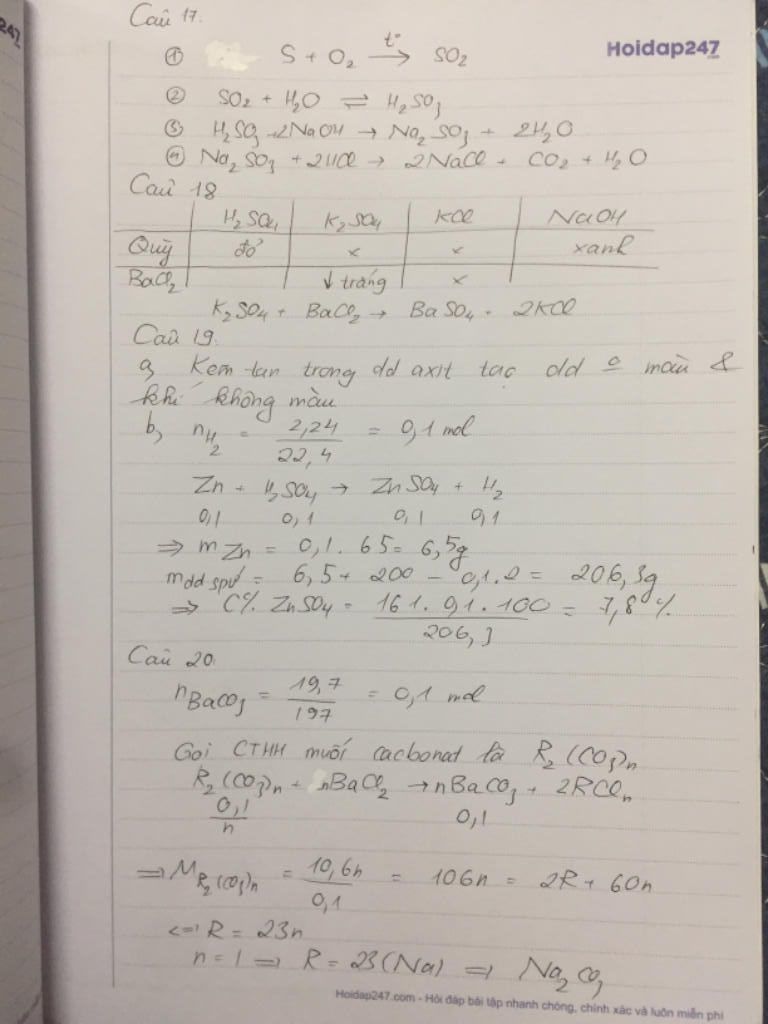 Câu 17.
① S + O₂ →(t°) SO₂
Hoidap247.com
② SO₂ + H₂O ⇌ H₂SO₃
③ H₂SO₃ + 2NaOH → Na₂SO₃ + 2H₂O
④ Na₂SO₃ + 2HCl → 2NaCl + CO₂ + H₂O
Câu 18
H₂SO₄ | K₂SO₄ | KCl | NaOH
Quỳ | đỏ | x | x | xanh
BaCl₂ | | ↓ trắng | x |
K₂SO₄ + BaCl₂ → BaSO₄ + 2KCl
Câu 19.
a, Kẽm tan trong dd axit tạo dd o màu &
khí không màu
b, nH₂ = 2,24/22,4 = 0,1 mol
Zn + H₂SO₄ → ZnSO₄ + H₂
0,1 0,1 0,1 0,1
=> mZn = 0,1 . 65 = 6,5g
mdd spứ = 6,5 + 200 - 0,1.2 = 206,3g
=> C% ZnSO₄ = 161 . 0,1 . 100/206,3 = 7,8%
Câu 20.
nBaCO₃ = 19,7/197 = 0,1 mol
Gọi CTHH muối cacbonat là R₂(CO₃)n
R₂(CO₃)n + nBaCl₂ → nBaCO₃ + 2RCln
0,1/n 0,1
=> M R₂(CO₃)n = 10,6n/0,1 = 106n = 2R + 60n
<=> R = 23n
n = 1 => R = 23 (Na) => Na₂CO₃
Hoidap247.com - Hỏi đáp bài tập nhanh chóng, chính xác và luôn miễn phí